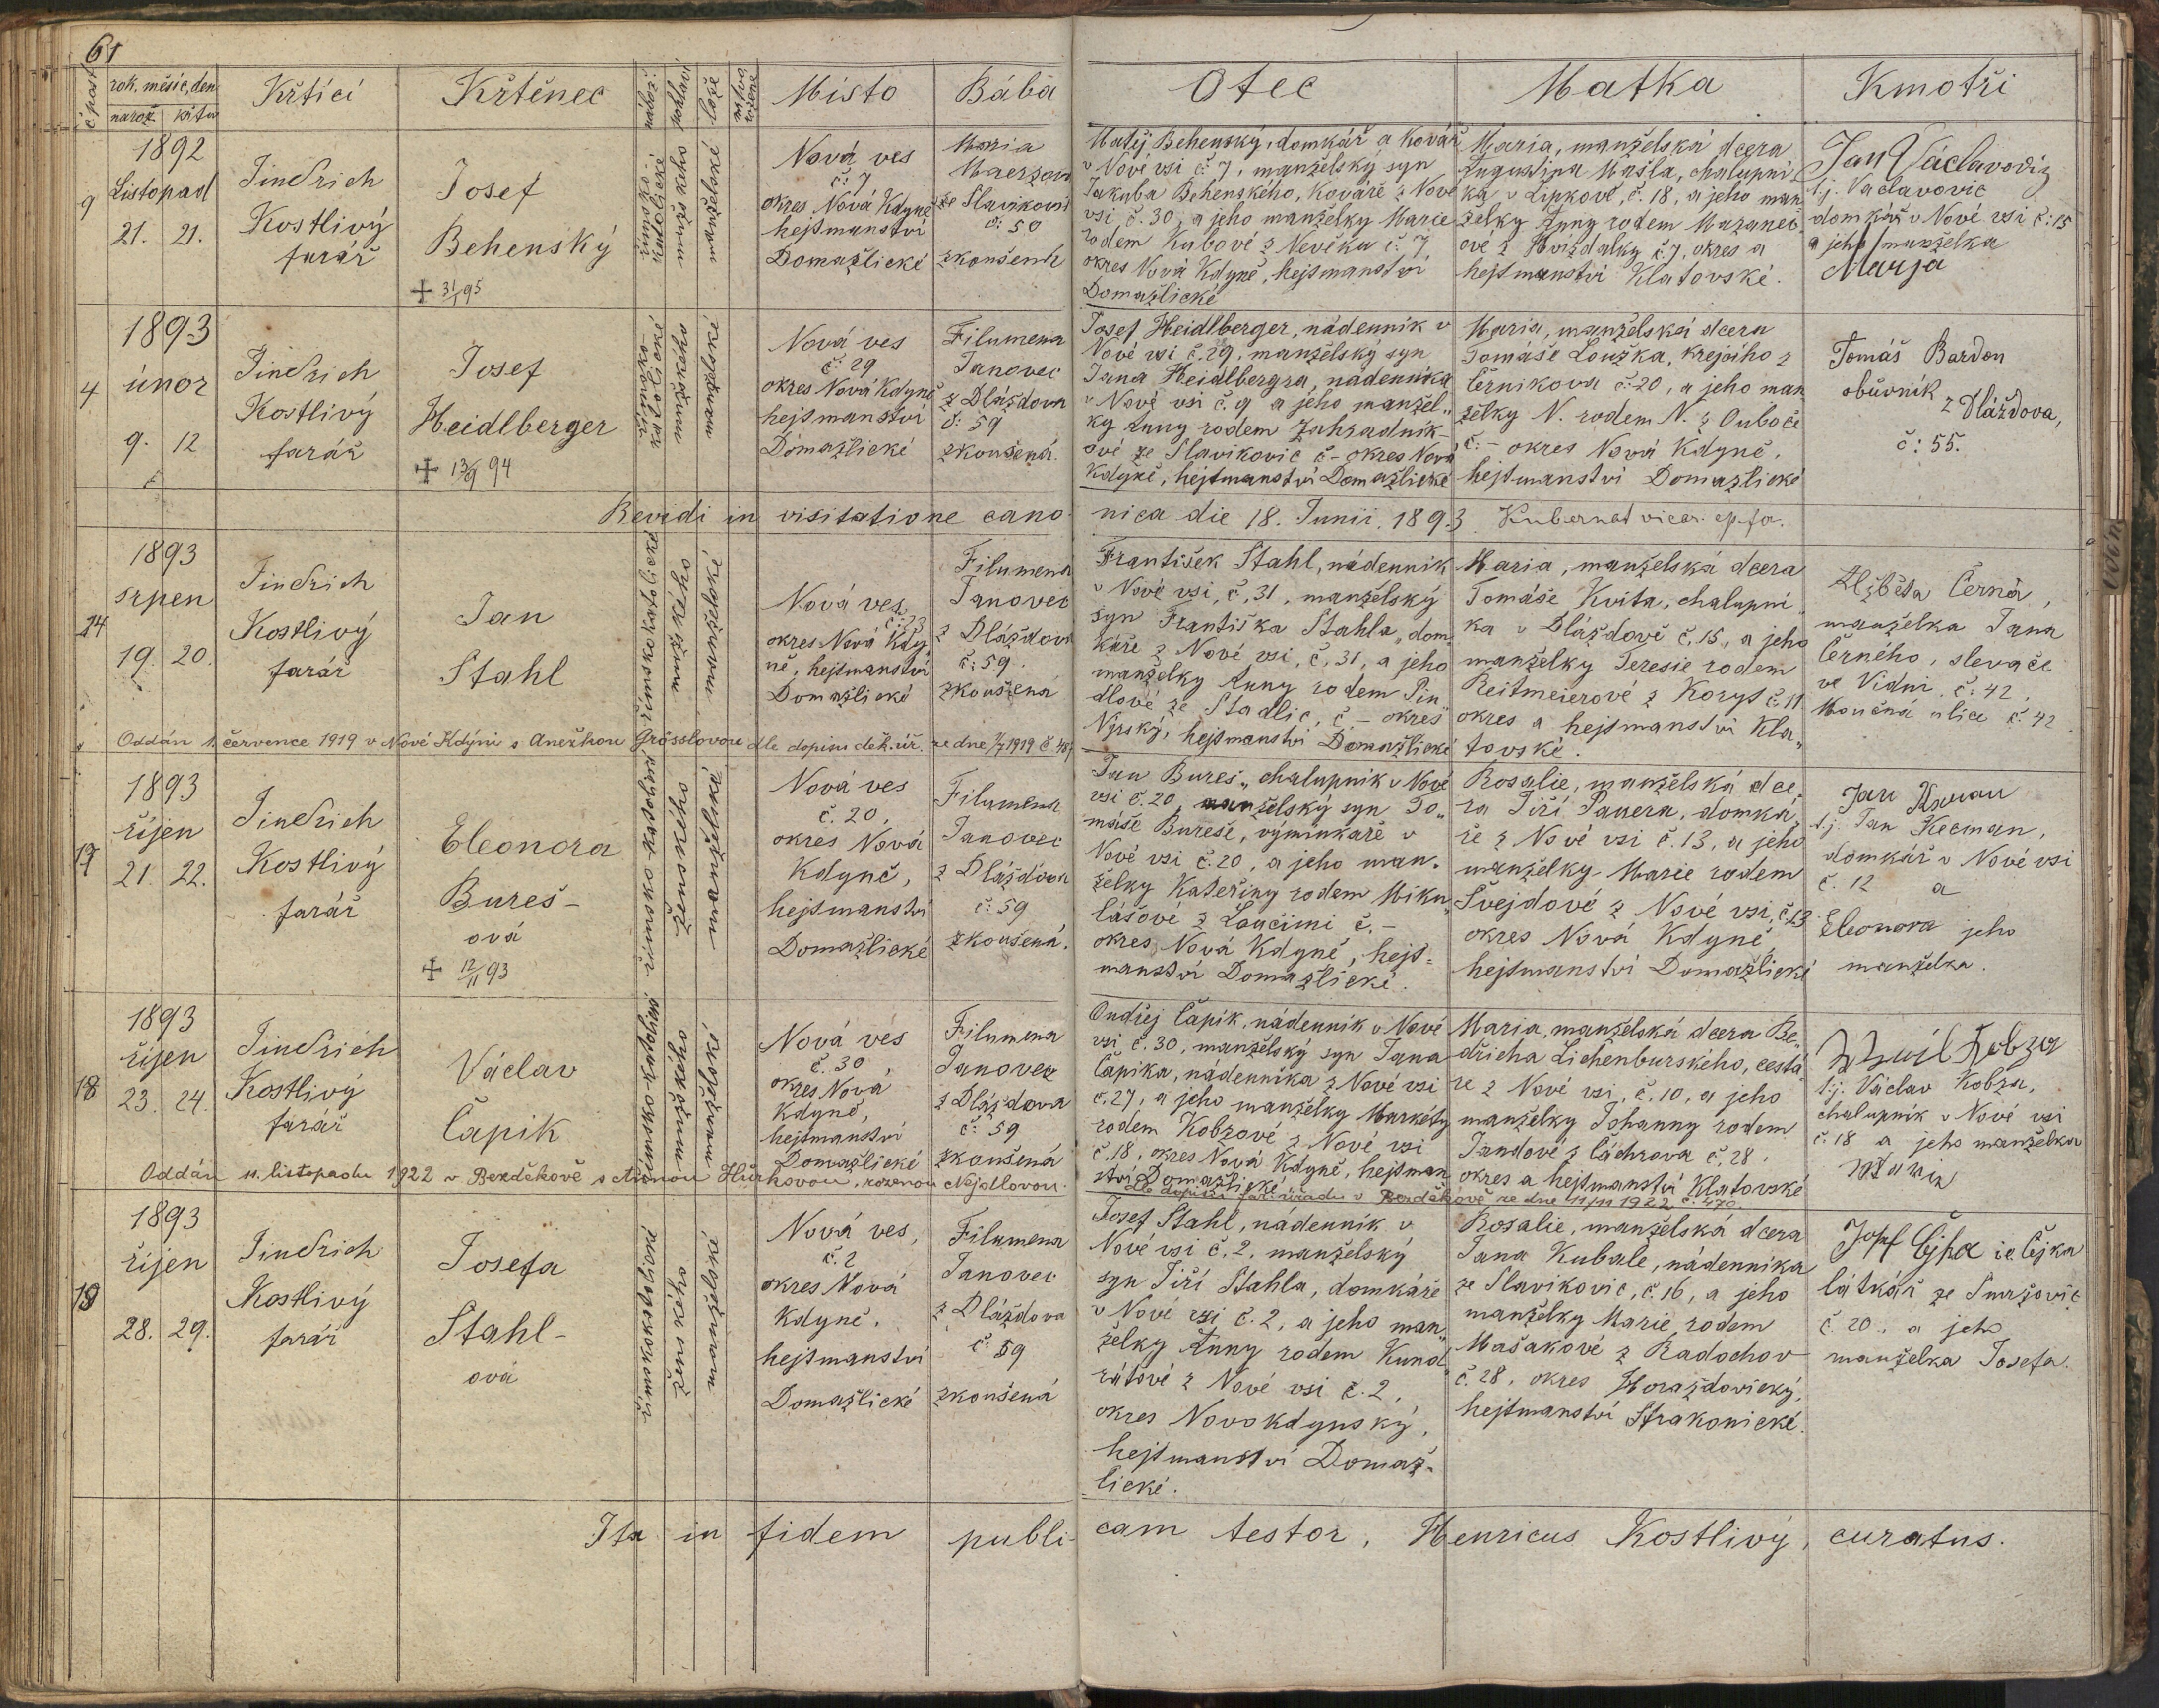 61
č. post.
rok, měsíc, den
naroz. křtu
Křtící
Křtěnec
nábož.
pohlaví
lože
Místo
Bába
Otec
Matka
Kmotři
9
1892
Listopad
21. 21.
Jindřich
Kostlivý
farář
Josef
Behenský
✝ 3/1 95
římsko-
katolické
mužského
manželské
Nová ves
č: 7
okres Nová Kdyně
hejtmanství
Domažlické
Maria
ze Slavikovic
č: 50
zkoušená
Matěj Behenský, domkář a Kovář
v Nové vsi č: 7, manželský syn
Jakuba Behenského, Kováře z Nové
vsi č. 30, a jeho manželky Marie
rodem Kubové z č. 7,
okres Nová Kdyně, hejtmanství
Domažlické
Maria, manželská dcera
Augustina Mašla, chalupní-
ka v Lipkové, č. 18, a jeho man-
želky Anny rodem Mazanec-
ové z Hvizdalky č. 7, okres a
hejtmanství Klatovské.
Jan Václavoviz
t.j. Vaclavovic
domkář v Nové vsi č: 15
a jeho manželka
Marja
4
1893
únor
9. 12
Jindřich
Kostlivý
farář
Josef
Heidlberger
✝ 13/9 94
římsko-
katolické
mužského
manželské
Nová ves
č: 29
okres Nová Kdyně
hejtmanství
Domažlické
Filumena
Janovec
z Dláždova
č: 59
zkoušená.
Josef Heidlberger, nádenník v
Nové vsi č. 29, manželský syn
Jana Heidlbergra, nádenníka
v Nové vsi č. 9 a jeho manžel„
ky Anny rodem Zahradník-
ové ze Slavikovic č - okres Nová
Kdyně, hejtmanství Domažlické
Maria, manželská dcera
Tomáše Loužka, krejčího z
Černikova č: 20, a jeho man
želky N. rodem N. z Ouboče
č: - okres Nová Kdyně,
hejtmanství Domažlické
Tomáš Bardon
obuvník
z Dláždova,
č: 55.
Revidi in visitatione cano nica die 18. Junii. 1893 Kubernat vicar.
14
1893
srpen
19. 20.
Jindřich
Kostlivý
farář
Jan
Stahl
římskokatolické
mužského
manželské
Nová ves,
č: 33
okres Nová Kdy-
ně, hejtmanství
Domažlické
Filumena
Janovec
z Dláždova
č: 59.
zkoušená
František Stahl, nádenník
v Nové vsi, č, 31, manželský
syn Františka Stahla, dom„
káře z Nové vsi, č, 31, a jeho
manželky Anny rodem Pin„
dlové ze Stadlic, č - okres
Nýrský, hejtmanství Domažlické
Maria, manželská dcera
Tomáše Kvita, chalupní„
ka v Dlážďově č. 15, a jeho
manželky Teresie rodem
Reitmeierové z Koryt č. 11
okres a hejtmanství Kla„
tovské.
Alžběta Černá,
manželka Jana
Černého, slevače
ve Vídni, č: 42,
Moučná ulice č. 42
Oddán 1. července 1919 v Nové Kdyni s Anežkou Grösslovou dle dopisu děk. úř. ze dne 1/7 1919 č 487
17
1893
říjen
21. 22.
Jindřich
Kostlivý
farář
Eleonora
Bureš-
ová
✝ 12/11 93
římsko-katolické
ženského
manželské
Nová ves
č. 20,
okres Nová
Kdyně,
hejtmanství
Domažlické
Filumena
Janovec
z Dlážďova
č: 59
zkoušená.
Jan Bureš, chalupník v Nové
vsi č. 20, manželský syn To„
máše Bureše, výminkáře v
Nové vsi č. 20, a jeho man„
želky Kateřiny rodem Miku„
lášové z Loučimi č. -
okres Nová Kdyně, hejt-
manství Domažlické.
Rosalie, manželská dce-
ra Jiří Pauera, domká„
ře z Nové vsi č. 13, a jeho
manželky Marie rodem
Švejdové z Nové vsi, č. 13
okres Nová Kdyně,
hejtmanství Domažlické
Jan
t.j. Jan Kecman,
domkář v Nové vsi
č. 12 a
Eleonora jeho
manželka.
18
1893
říjen
23. 24.
Jindřich
Kostlivý
farář
Václav
Čapik
římsko-katolické
mužského
manželské
Nová ves
č. 30
okres Nová
Kdyně,
hejtmanství
Domažlické
Filumena
Janovec
z Dlážďova
č: 59
zkoušená
Ondřej Čapik, nádenník v Nové
vsi č. 30, manželský syn Jana
Čapika, nádenníka z Nové vsi
č. 27, a jeho manželky Markéty
rodem Kobzové z Nové vsi
č. 18, okres Nová Kdyně, hejtman
ství Domažlické
Maria, manželská dcera Be„
dřicha Lichenburského, cestá„
ře z Nové vsi, č. 10, a jeho
manželky Johanny rodem
Jandové z Čachrova č. 28,
okres a hejtmanství Klatovské
Kobza
t.j. Václav Kobza,
chalupník v Nové vsi
č. 18 a jeho manželka
Maria
Oddán 11. listopadu 1922 v Bezděkově s Annou Hůrkovou, rozenou Nejdlovou.
dle dopisu far. úřadu v Bezděkově ze dne 11/11 1922 č. 470.
19
1893
říjen
28. 29.
Jindřich
Kostlivý
farář
Josefa
Stahl-
ová
římskokatolické
ženského
manželské
Nová ves,
č. 2
okres Nová
Kdyně,
hejtmanství
Domažlické
Filumena
Janovec
z Dlážďova
č: 59
zkoušená
Josef Stahl, nádenník v
Nové vsi č. 2, manželský
syn Jiří Stahla, domkáře
v Nové vsi č. 2, a jeho man„
želky Anny rodem Kund„
rátové z Nové vsi č. 2,
okres Novokdynský,
hejtmanství Domaž-
lické.
Rosalie, manželská dcera
Jana Kubale, nádenníka
ze Slavikovic, č. 16, a jeho
manželky Marie rodem
Mašakové z Radochov
č. 28, okres Horažďovický,
hejtmanství Strakonické.
Josef Čejka i.e. Čejka
látkář ze Smržovic
č. 20, a jeho
manželka Josefa.
Ita in fidem publi- cam testor, Henricus Kostlivý, curatus.